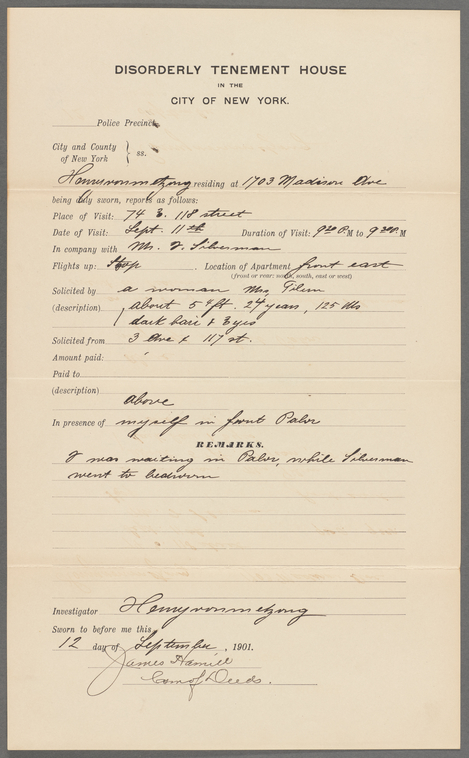 DISORDERLY TENEMENT HOUSE
IN THE
CITY OF NEW YORK.
Police Precinct.
City and County
of New York } ss.
residing at 1703 Madison Ave
being duly sworn, reports as follows:
Place of Visit: 74 E. 118 street
Date of Visit: Sept. 11th Duration of Visit: 9 P.M to 9 P.M
In company with Mr. I. Silverman
Flights up: Location of Apartment front east
(front or rear: north, south, east or west)
Solicited by a woman Mrs
(description) about 5 ft. 24 years, 125 lbs
dark hair & Eyes
Solicited from 3 Ave & 117 st.
Amount paid:
Paid to
(description)
above
In presence of myself in front Palor
REMARKS.
I was waiting in Palor, while Silverman
went to bedroom
Investigator
Sworn to before me this
12 day of September, 1901.
James Hamill
Com of Deeds.